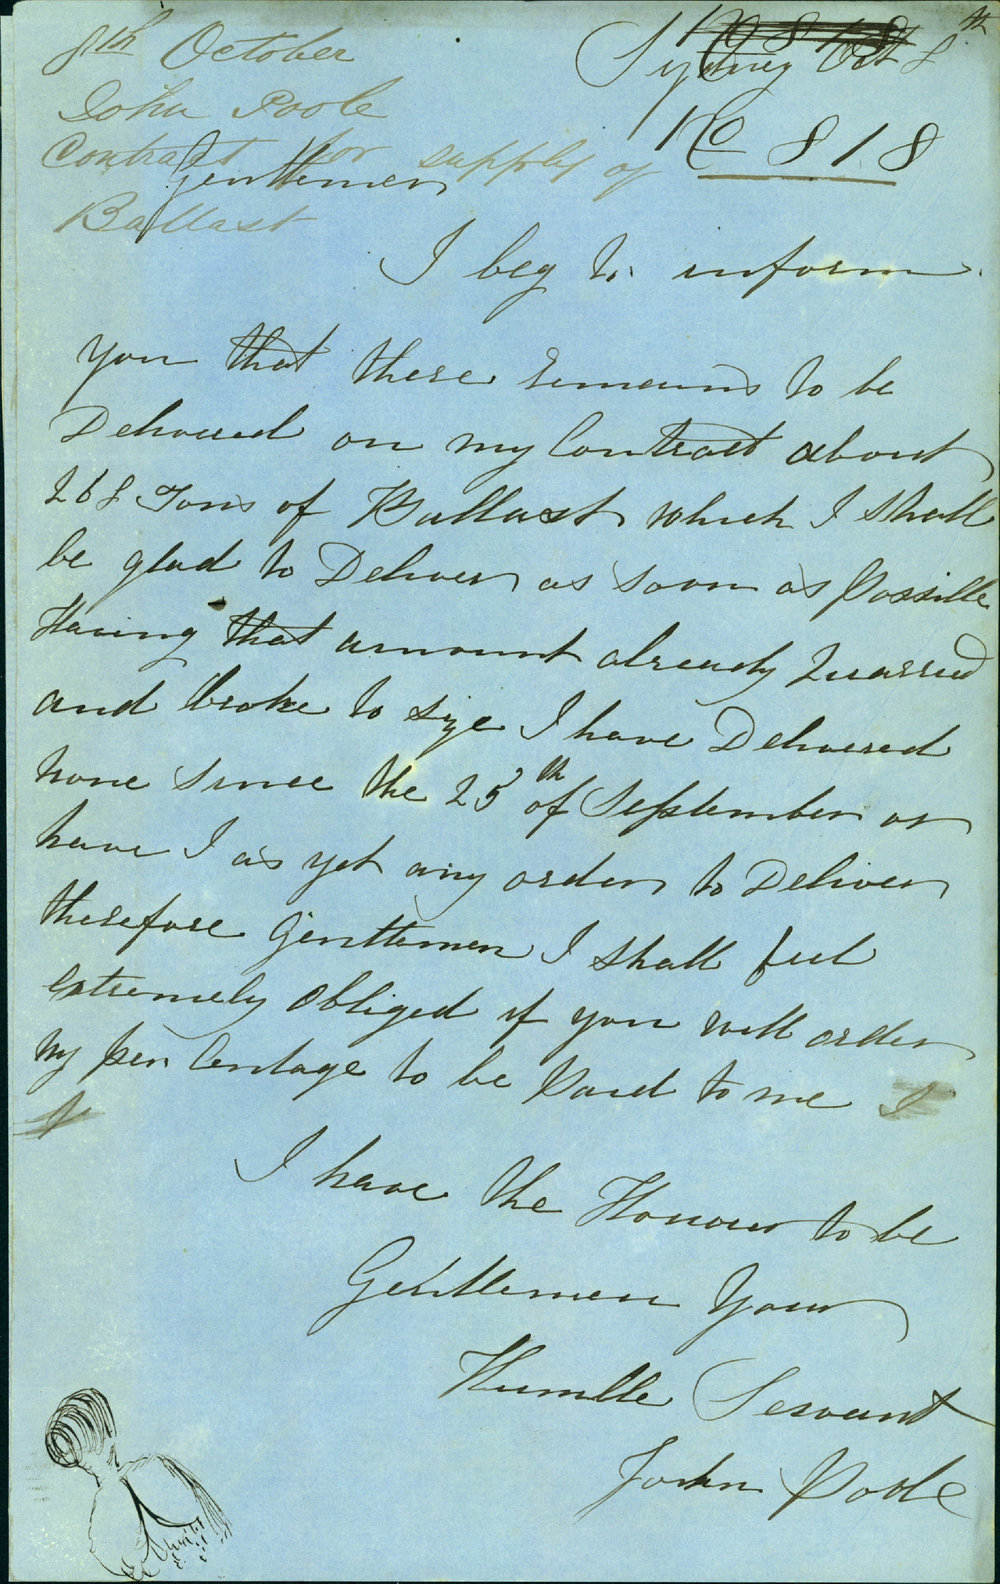 Sydney Oct 8th
8th October
John Poole
Contract for supply of
Ballast
No 818
Gentlemen
I beg to inform
you that there remains to be
Delivered on my Contract about
268 Tons of Ballast which I shall
be glad to Deliver as soon as Possible
Having that amount already Quarried
and broke to size I have Delivered
none since the 25th of September or
have I as yet any order to Deliver
therefore Gentlemen I shall feel
extremely obliged if you will order
my per Centage to be Paid to me I
I have the Honour to be
Gentlemen Your
Humble Servant
John Poole